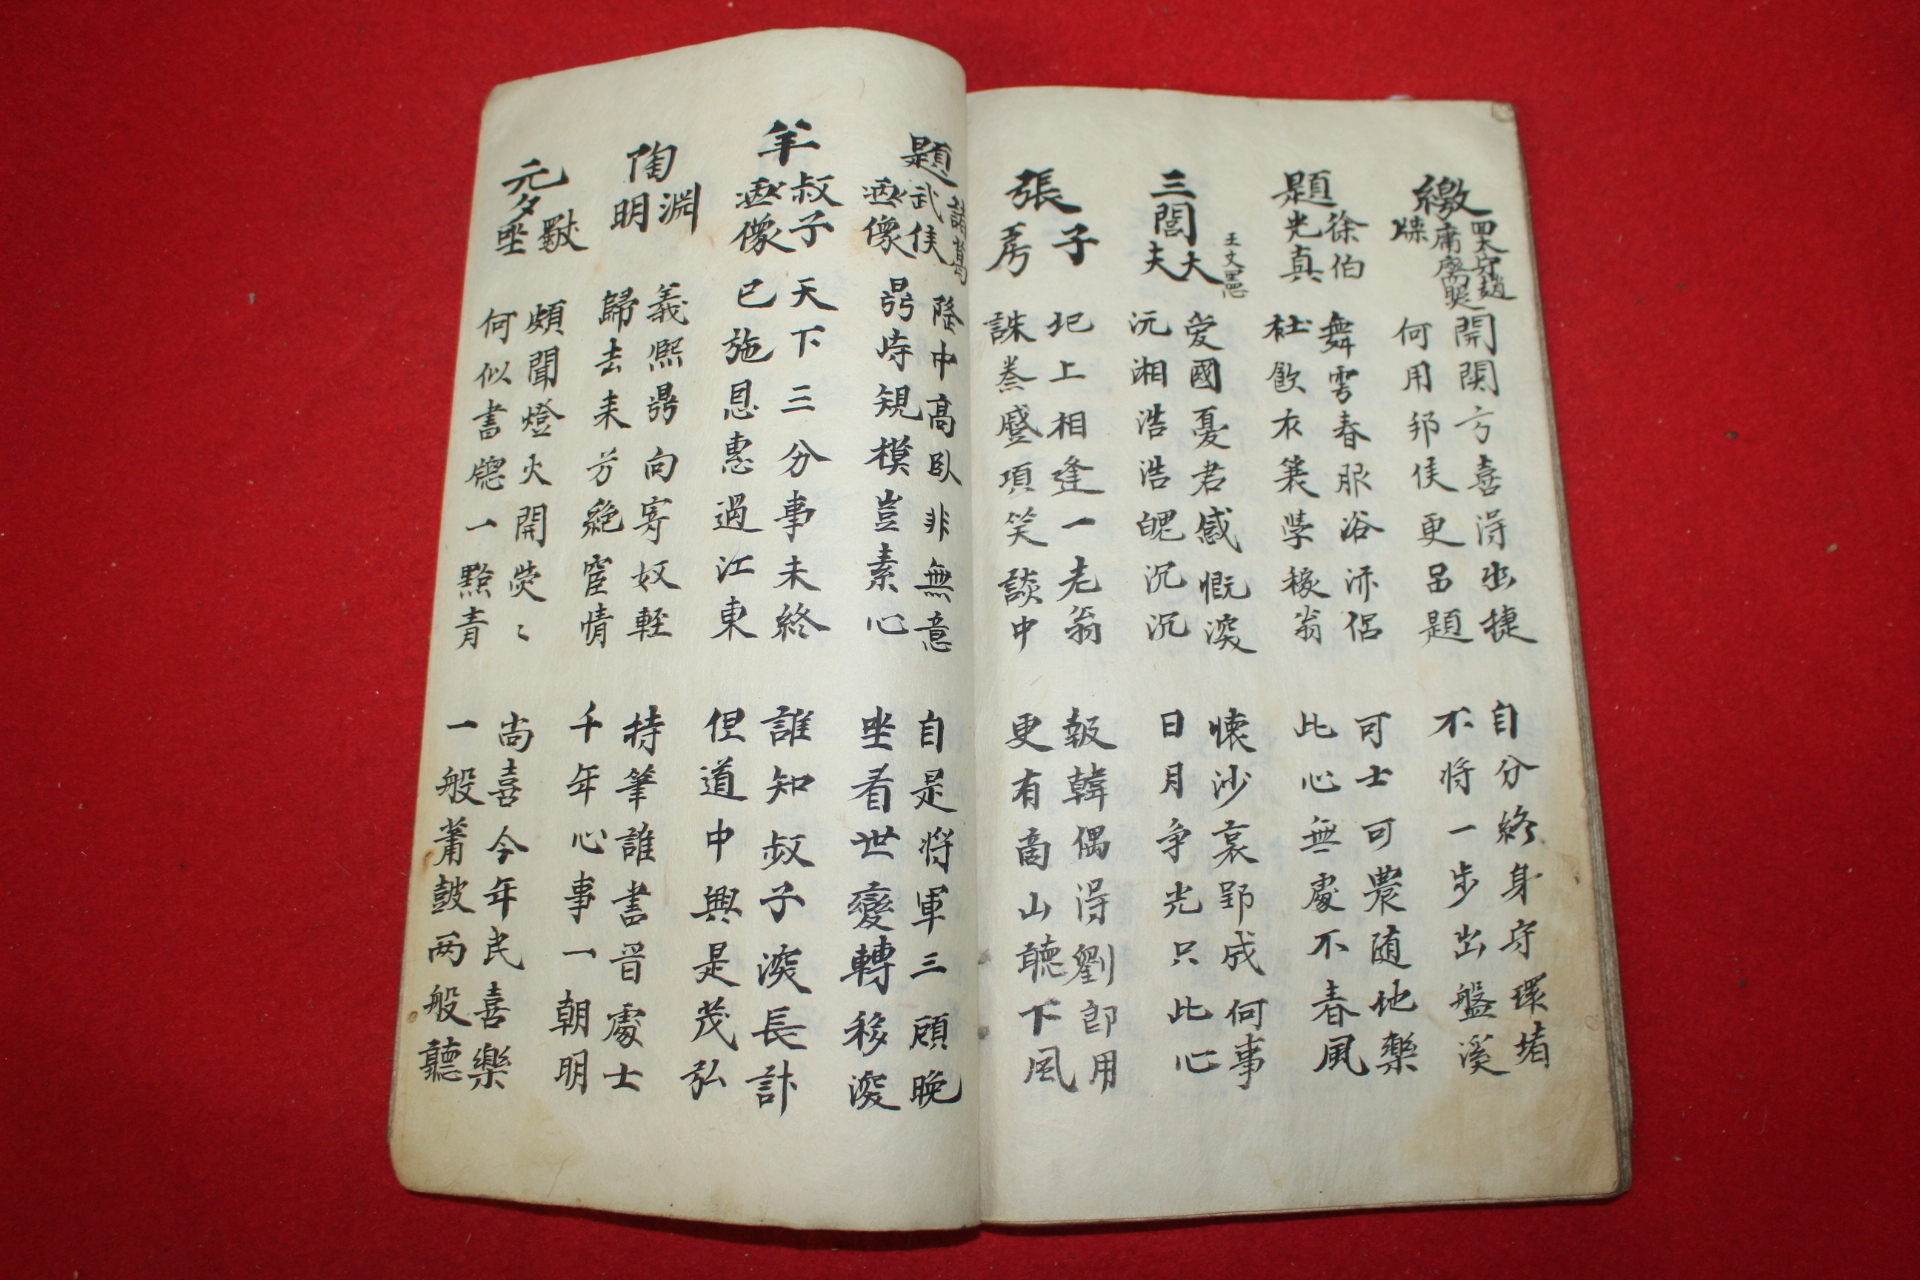 繳
四太守趙
庸齋聘
牒
開關方喜得出捷
自分終身守環堵
何用邦侯更品題
不將一步出盤溪
題
徐伯
光真
舞雩春服浴沂侶
可士可農隨地樂
杜飲衣蓑學稼翁
此心無處不春風
三閭
大夫
王文憲
愛國憂君感慨深
懷沙哀郢成何事
沅湘浩浩魄沉沉
日月爭光只此心
張
子房
圯上相逢一老翁
報韓偶得劉郎用
誅秦蹙項笑談中
更有商山聽下風
題
諸葛
武侯
畫像
隆中高臥非無意
自是將軍三顧晚
曷時規模豈素心
坐看世變轉移深
羊
叔子
畫像
天下三分事未終
誰知叔子深長計
已施恩惠過江東
但道中興是茂弘
陶
淵明
義熙曷向寄奴輕
特筆誰書晉處士
歸去来兮絶宦情
千年心事一朝明
元夕
獸坐
頗聞燈火開熒〻
尚喜今年民喜樂
何似書牕一點青
一般蕭鼓两般聽